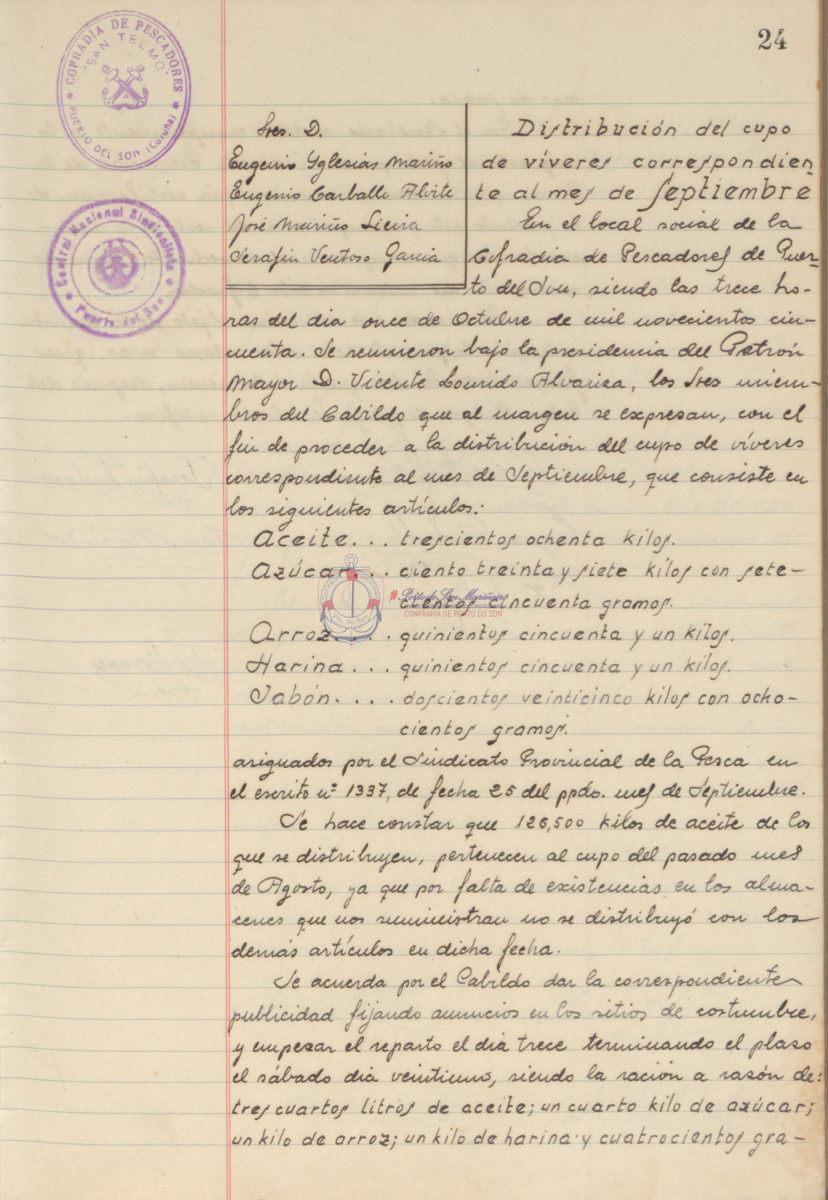 24
COFRADIA DE PESCADORES
"SAN TELMO"
PUERTO DEL SON (Coruña)
Central Nacional Sindicalista
Puerto del Son
Sres. D.
Eugenio Yglesias Mariño
Eugenio Carballo Alvite
José Mariño Lieira
Serafin Ventoso Garcia
Distribución del cupo
de víveres correspondien-
te al mes de Septiembre
En el local social de la
Cofradia de Pescadores de Puer-
to del Son, siendo las trece ho-
ras del dia once de Octubre de mil novecientos cin-
cuenta. Se reunieron bajo la presidencia del Patrón
Mayor D. Vicente Lourido Alvariza, los Sres miem-
bros del Cabildo que al margen se expresan, con el
fin de proceder a la distribución del cupo de víveres
correspondiente al mes de Septiembre, que consiste en
los siguientes artículos.:
Aceite... trescientos ochenta kilos.
Azúcar... ciento treinta y siete kilos con sete-
cientos cincuenta gramos.
Arroz.... quinientos cincuenta y un kilos.
Harina... quinientos cincuenta y un kilos.
Jabón.... doscientos veinticinco kilos con ocho-
cientos gramos.
asignados por el Sindicato Provincial de la Pesca en
el escrito nº 1337, de fecha 25 del ppdo. mes de Septiembre.
Se hace constar que 126,500 kilos de aceite de los
que se distribuyen, pertenecen al cupo del pasado mes
de Agosto, ya que por falta de existencias en los alma-
cenes que nos suministran no se distribuyó con los
demás artículos en dicha fecha.
Se acuerda por el Cabildo dar la correspondiente
publicidad fijando anuncios en los sitios de costumbre,
y empesar el reparto el dia trece terminando el plaso
el sábado dia veintiuno, siendo la ración a rasón de:
tres cuartos litros de aceite; un cuarto kilo de azúcar;
un kilo de arroz; un kilo de harina y cuatrocientos gra-
CONFRARIA DE PORTO DO SON